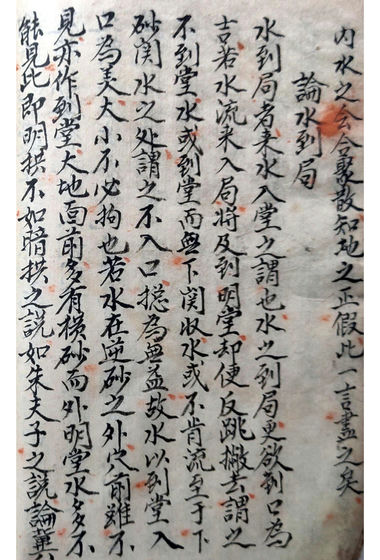 內水之会合聚散知地之正假此一言盡之矣
論水到局
水到局者来水入堂之謂也水之到局更欲到口為
吉若水流来入局將及到明堂却便反跳撇去謂之
不到堂水或到堂而無下関收水或不肯流至于下
砂関水之处謂之不入口摠為無益故水以到堂入
口為美大小不必拘也若水在逆砂之外穴前雖不
見亦作到堂大地面前多有横砂而外明堂水多不
能見此即明拱不如暗拱之說如朱夫子之說論冀